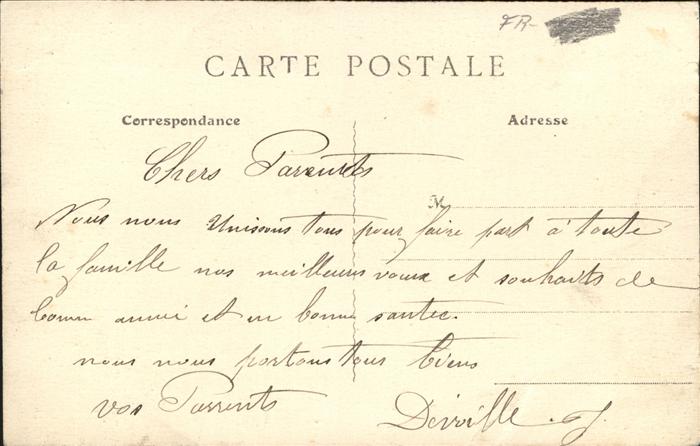 FR-
CARTE POSTALE
Correspondance
Adresse
Chers Parents
M
Nous nous Unissons tous pour faire part à toute
la famille nos meilleurs vœux et souhaits de
bonn anné et en bonne santée.
nous nous portons tous biens
vos Parrents Derville